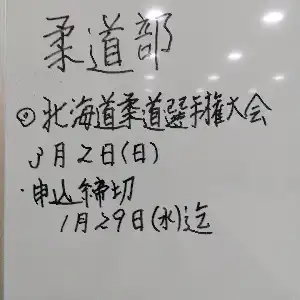 柔道部
◎北海道柔道選手権大会
3月2日(日)
・申込締切
1月29日(水)迄